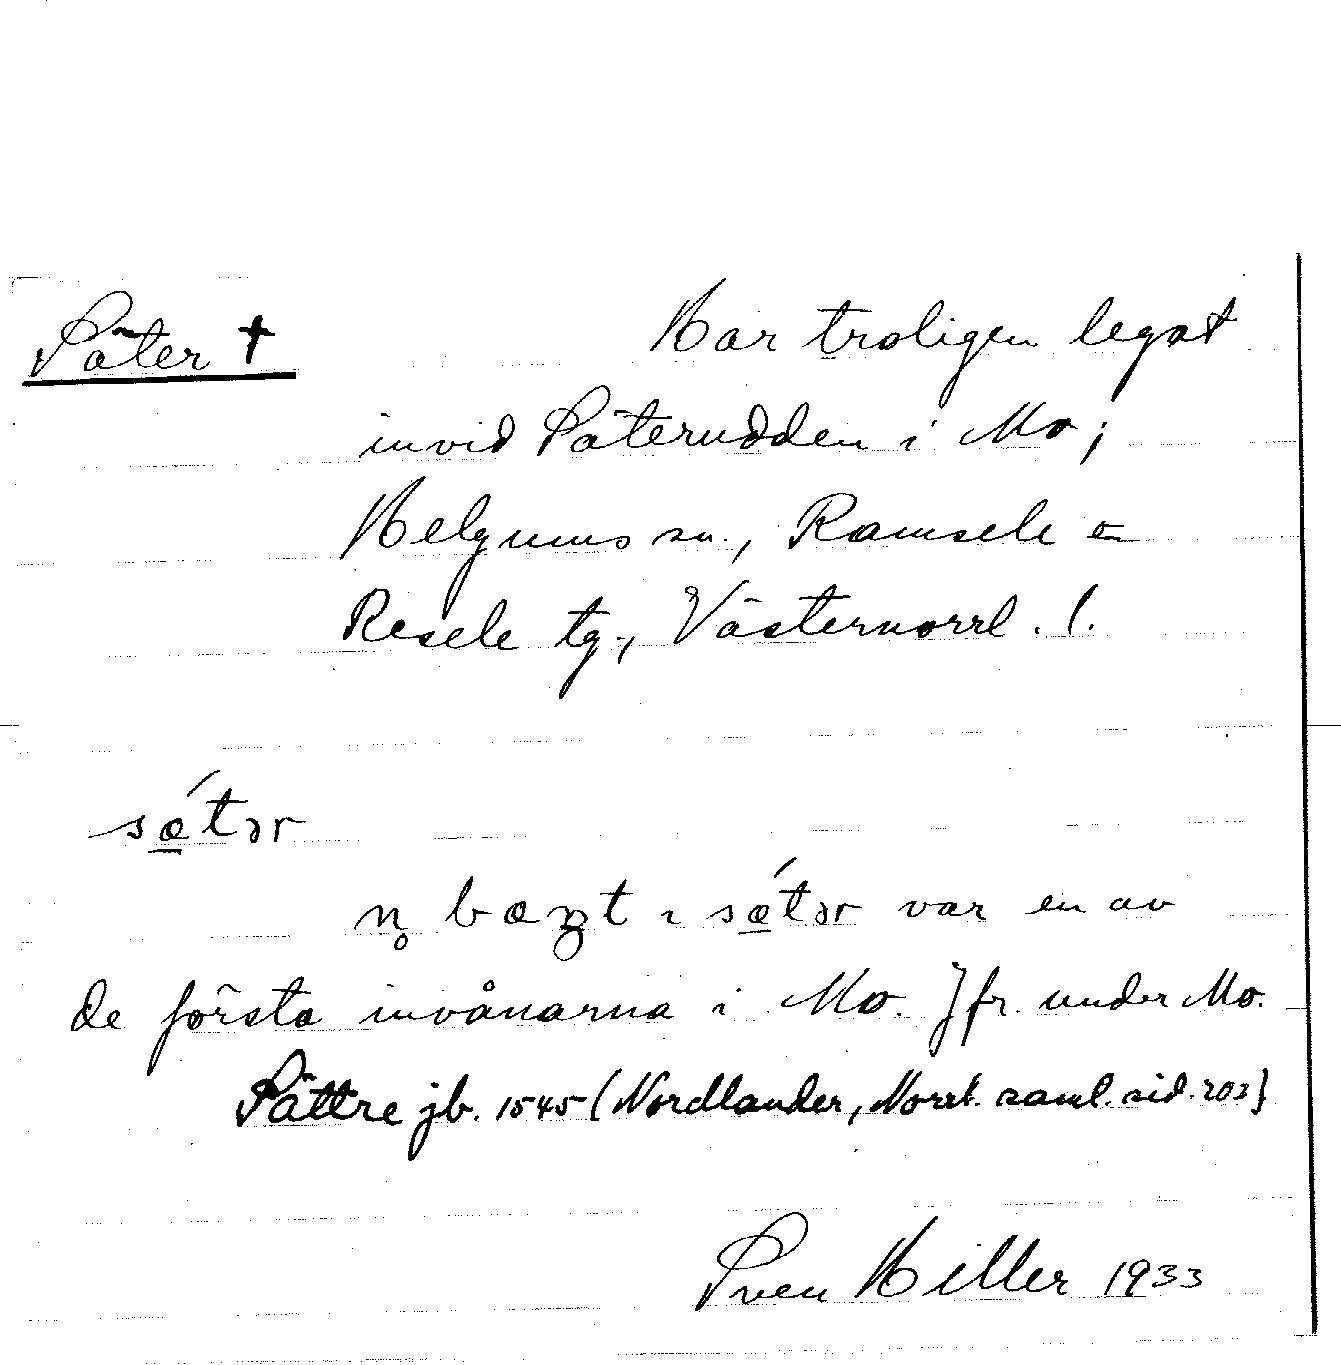 Säter †
Har troligen legat
invid Säterudden i Mo;
Helgums sn., Ramsele o
Resele tg., Västernorrl. l.
sǽtər
var en av
de första invånarna i Mo. Jfr. under Mo.
Sättre jb. 1545 (Nordlander, Norrl. saml. sid. 203)
Sven Hiller 1933